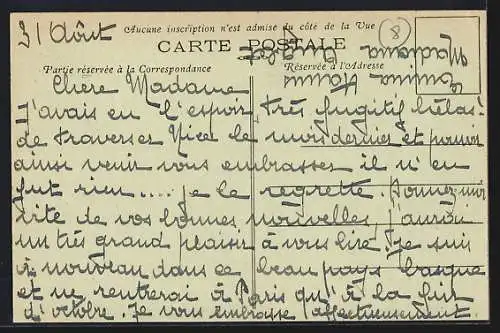 31 Août
Aucune inscription n'est admise du côté de la Vue
8
CARTE POSTALE
Partie réservée à la Correspondance
Réservée à l'Adresse
Chere Madame
J'avais eu l'espoir, très fugitif hélas!
de traverser Nice le mois dernier et pouvoir
ainsi venir vous embrasser il n'en
fut rien.... je le regrette. Donnez-moi
vite de vos bonnes nouvelles, j'aurai
un très grand plaisir à vous lire. Je suis
à nouveau dans ce beau pays basque
et ne rentrerai à Paris qu'à la fin
d'octobre. Je vous embrasse affectueusement